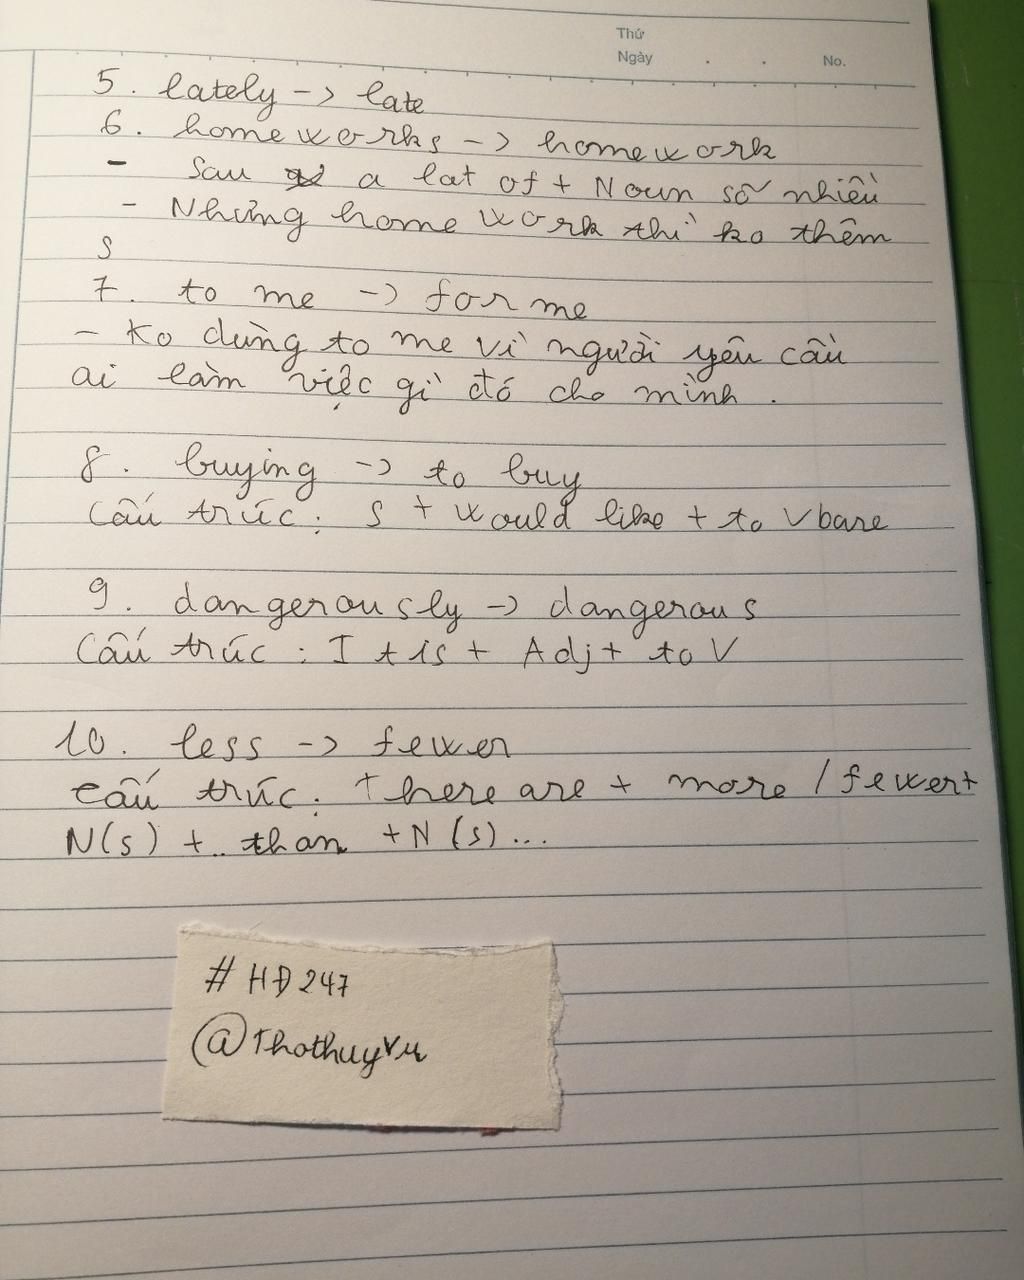 Thứ
Ngày . . No.
5. lately -> late
6. homeworks -> homework
- Sau a lat of + Noun số nhiều
- Nhưng homework thì ko thêm
s
7. to me -> for me
- Ko dùng to me vì người yêu cầu
ai làm việc gì đó cho mình.
8. buying -> to buy
Cấu trúc: S + would like + to Vbare
9. dangerously -> dangerous
Cấu trúc: It is + Adj + to V
10. less -> fewer
Cấu trúc: There are + more / fewer +
N(s) + than + N(s)...
# HĐ247
@Thothuyvu